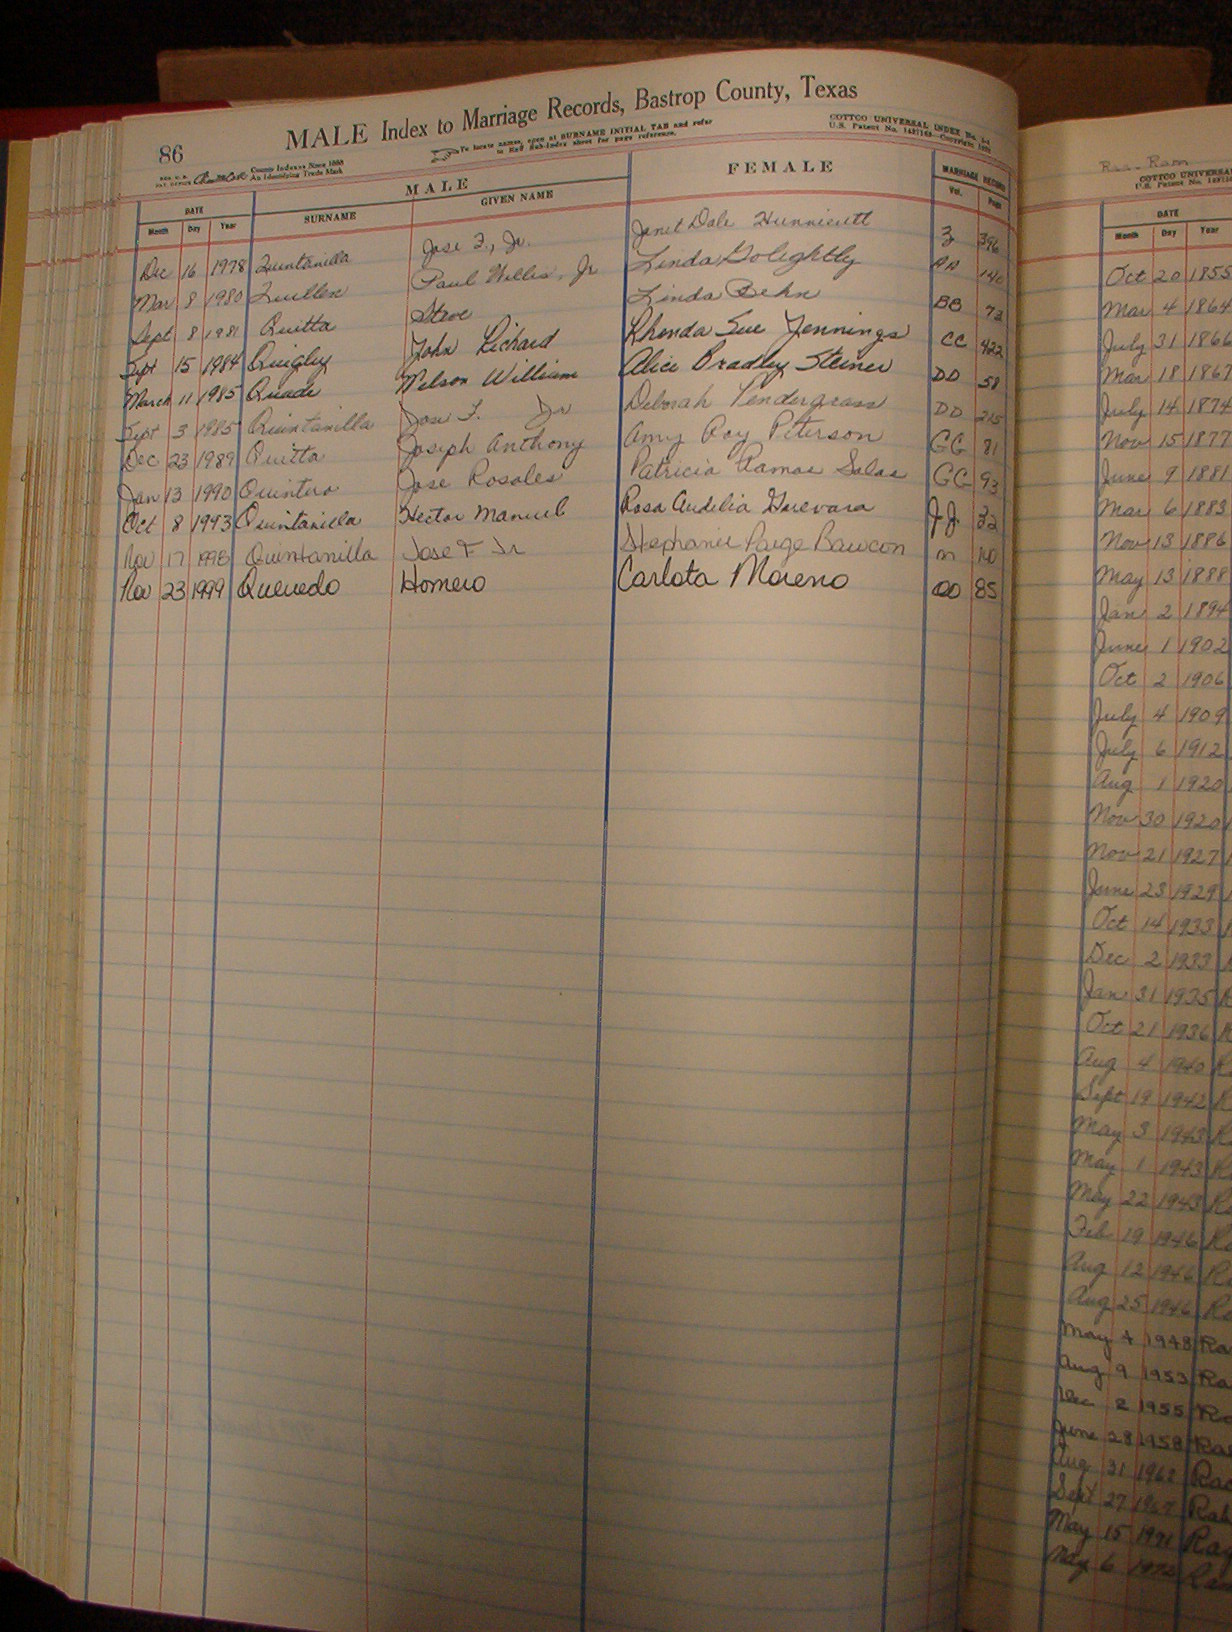 86
MALE Index to Marriage Records, Bastrop County, Texas
REG. U.S. PAT. OFFICE County Indexes Since 1888 An Identifying Trade Mark
To locate names, open at SURNAME INITIAL TAB and refer
to Sub-Index sheet for page reference.
COTTCO UNIVERSAL INDEX No.
U. S. Patent No. Copyright
MALE FEMALE MARRIAGE RECORD
DATE SURNAME GIVEN NAME Vol. Page
Month Day Year
Dec 16 1978 Quintanilla Jose F., Jr. Janet Dale Hunnicutt Z 396
Mar 8 1980 Quillen Paul Willis, Jr Linda Golightly AA 140
Sept 8 1981 Quitta Steve Linda Behn BB 72
Sept 15 1984 Quigley John Richard Rhonda Sue Jennings CC 422
March 11 1985 Quade Nelson William Alice Bradley Steiner DD 58
Sept 3 1985 Quintanilla Jose F. Jr Deborah Pendergrass DD 215
Dec 23 1989 Quitta Joseph Anthony Amy Roy Peterson GG 81
Jan 13 1990 Quintero Jose Rosales Patricia Ramos Salas GG 93
Oct 8 1993 Quintanilla Hector Manuel Rosa Audelia Guevara JJ 22
Nov 17 1998 Quintanilla Jose F Jr Stephanie Paige Bawcon 140
Nov 23 1999 Quevedo Homero Carlota Moreno OO 85
Raa-Ram
COTTCO UNIVERSAL
U.S. Patent No.
DATE
Month Day Year
Oct 20 1855
Mar 4 1864
July 31 1866
Mar 18 1867
July 14 1874
Nov 15 1877
June 9 1881
Mar 6 1883
Nov 13 1886
May 13 1888
Jan 2 1894
June 1 1902
Oct 2 1906
July 4 1909
July 6 1912
Aug 1 1920
Nov 30 1920
Nov 21 1927
June 23 1929
Oct 14 1933
Dec 2 1933
Jan 31 1935
Oct 21 1936
Aug 4 1940
Sept 19 1942
May 3 1943
May 1 1943
May 22 1943
Feb 19 1946
Aug 12 1946
Aug 25 1946
May 4 1948 Ra
Aug 9 1953 Ra
Dec 2 1955
June 28 1958
Aug 31 1962
Sept 27 1967
May 15 1971
May 6 1972